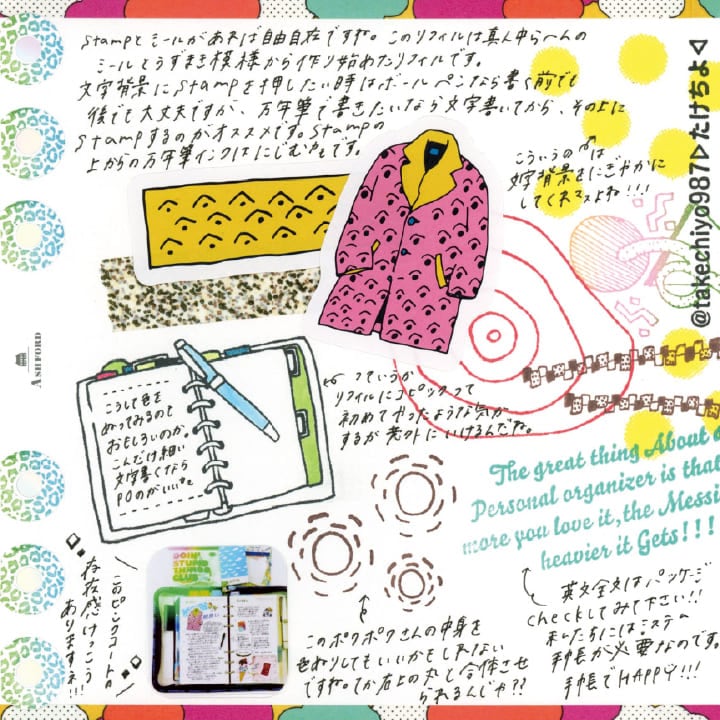 Stampとミールがあれば自由自在ですね。このリフィルは真ん中らへんの
ミールとうずまき模様から作り始めたリフィルです。
文字背景にStampを押したい時はボールペンなら書く前でも
後でも大丈夫ですが、万年筆で書きたいなら文字書いてから、その上に
Stampするのがオススメです。Stampの
上からの万年筆インクはにじむカモです。
こういうのは
文字背景をにぎやかに
してくれてるよね!!!
@takechiyo987▷たけちよ◁
ASHFORD
こうして色を
ぬってみるのも
おもしろいのか。
こんだけ細い
文字書くなら
POがいいぞ
っていうか
リフィルにコピックって
初めてやったような気が
するが 意外にいけるんだね。
The great thing About a
Personal organizer is that
more you love it, the Messi
heavier it Gets!!!
DOIN'
STUPID
THINGS
CLUB
このピンクコートの
存在感けっこう
ありますネ!!!
このポワポワさんの中身を
色ぬりしてもいいかもしれない
ですね。てか右上の丸と合体させ
られるんじゃ??
英文全文はパッケージ
checkしてみて下さい!!
私たちにはシステム
手帳が必要なのです。
手帳でHAPPY!!!